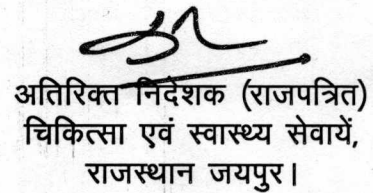 अतिरिक्त निदेशक (राजपत्रित)
चिकित्सा एवं स्वास्थ्य सेवायें,
राजस्थान जयपुर।